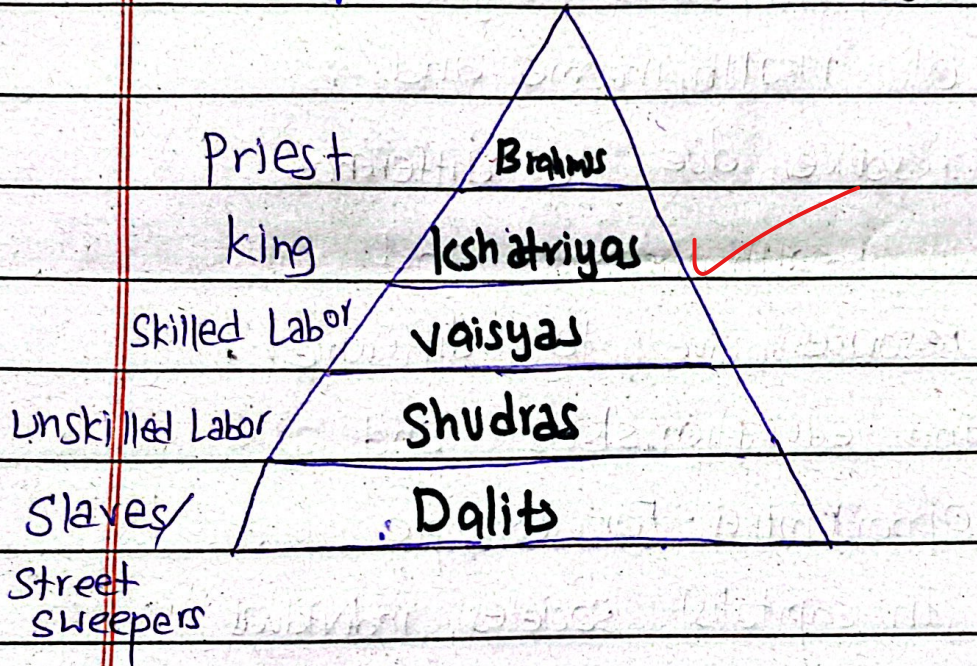 Priest Brahms
King Kshatriyas
Skilled Labor Vaisyas
Unskilled Labor Shudras
Slaves/ Dalits
Street
Sweepers